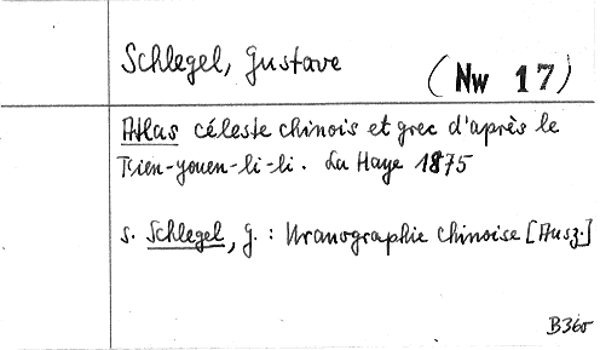 Schlegel, Gustave
(Nw 17)
Atlas céleste chinois et grec d'après le
Tsien-youen-li-li. La Haye 1875
s. Schlegel, G. : Uranographie chinoise [Ausz.]
B360